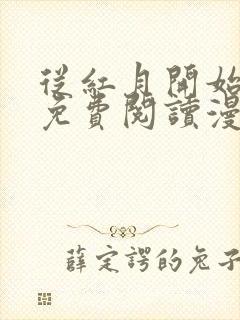 從紅月開始
免費閱讀漫
薛定諤的兔子